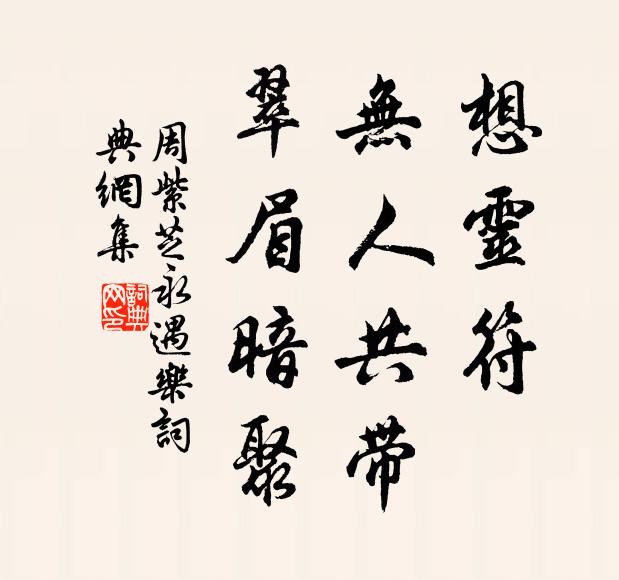 想靈符
無人共帶
翠眉暗聚
周紫芝永遇樂詞
典網集
詞典網印